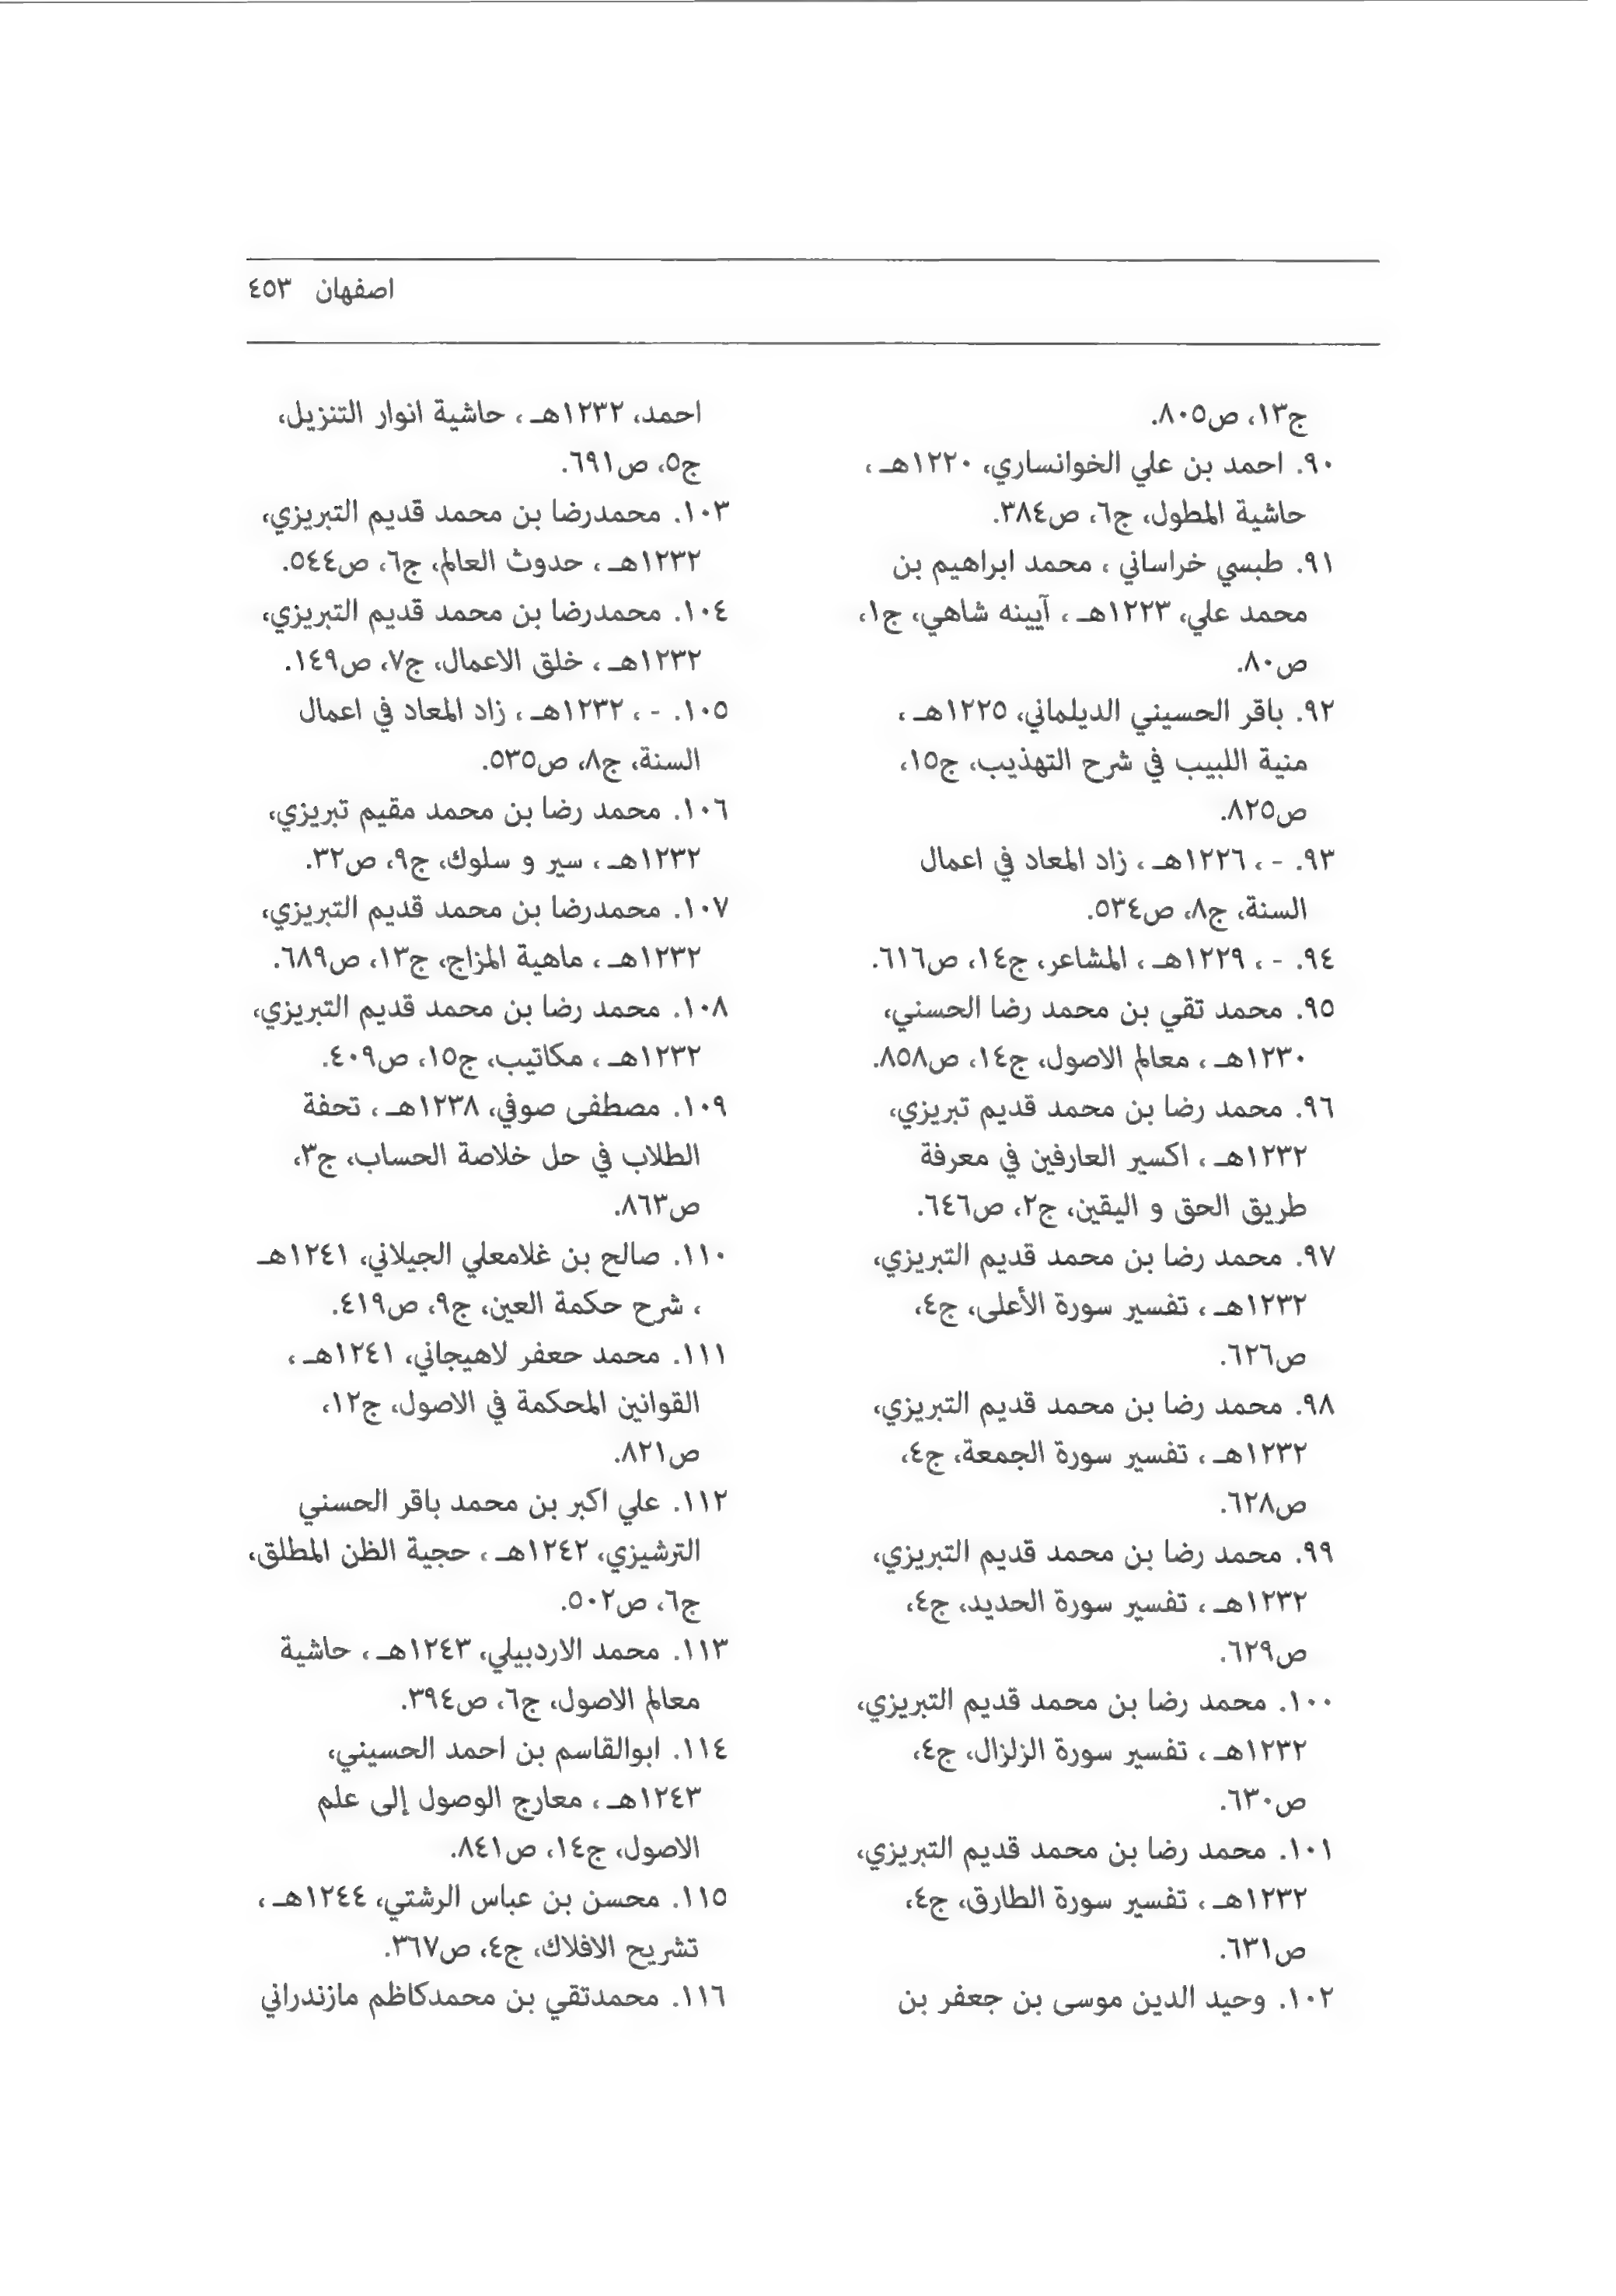 اصفهان ٤٥٣
ج١٣، ص٨٠٥.
٩٠. احمد بن علي الخوانساري، ١٢٢٠هـ ،
حاشية المطول، ج٦، ص٣٨٤.
٩١. طبسي خراساني ، محمد ابراهيم بن
محمد علي، ١٢٢٣هـ ، آيينه شاهي، ج١،
ص٨٠.
٩٢. باقر الحسيني الديلماني، ١٢٢٥هـ ،
منية اللبيب في شرح التهذيب، ج١٥،
ص٨٢٥.
٩٣. - ، ١٢٢٦هـ ، زاد المعاد في اعمال
السنة، ج٨، ص٥٣٤.
٩٤. - ، ١٢٢٩هـ ، المشاعر، ج١٤، ص٦١٦.
٩٥. محمد تقي بن محمد رضا الحسني،
١٢٣٠هـ ، معالم الاصول، ج١٤، ص٨٥٨.
٩٦. محمد رضا بن محمد قديم تبريزي،
١٢٣٢هـ ، اكسير العارفين في معرفة
طريق الحق و اليقين، ج٢، ص٦٤٦.
٩٧. محمد رضا بن محمد قديم التبريزي،
١٢٣٢هـ ، تفسير سورة الأعلى، ج٤،
ص٦٢٦.
٩٨. محمد رضا بن محمد قديم التبريزي،
١٢٣٢هـ ، تفسير سورة الجمعة، ج٤،
ص٦٢٨.
٩٩. محمد رضا بن محمد قديم التبريزي،
١٢٣٢هـ ، تفسير سورة الحديد، ج٤،
ص٦٢٩.
١٠٠. محمد رضا بن محمد قديم التبريزي،
١٢٣٢هـ ، تفسير سورة الزلزال، ج٤،
ص٦٣٠.
١٠١. محمد رضا بن محمد قديم التبريزي،
١٢٣٢هـ ، تفسير سورة الطارق، ج٤،
ص٦٣١.
١٠٢. وحيد الدين موسى بن جعفر بن
احمد، ١٢٣٢هـ ، حاشية انوار التنزيل،
ج٥، ص٦٩١.
١٠٣. محمدرضا بن محمد قديم التبريزي،
١٢٣٢هـ ، حدوث العالم، ج٦، ص٥٤٤.
١٠٤. محمدرضا بن محمد قديم التبريزي،
١٢٣٢هـ ، خلق الاعمال، ج٧، ص١٤٩.
١٠٥. - ، ١٢٣٢هـ ، زاد المعاد في اعمال
السنة، ج٨، ص٥٣٥.
١٠٦. محمد رضا بن محمد مقيم تبريزي،
١٢٣٢هـ ، سير و سلوك، ج٩، ص٣٢.
١٠٧. محمدرضا بن محمد قديم التبريزي،
١٢٣٢هـ ، ماهية المزاج، ج١٣، ص٦٨٩.
١٠٨. محمد رضا بن محمد قديم التبريزي،
١٢٣٢هـ ، مكاتيب، ج١٥، ص٤٠٩.
١٠٩. مصطفى صوفي، ١٢٣٨هـ ، تحفة
الطلاب في حل خلاصة الحساب، ج٣،
ص٨٦٣.
١١٠. صالح بن غلامعلي الجيلاني، ١٢٤١هـ
، شرح حكمة العين، ج٩، ص٤١٩.
١١١. محمد حعفر لاهيجاني، ١٢٤١هـ ،
القوانين المحكمة في الاصول، ج١٢،
ص٨٢١.
١١٢. علي اكبر بن محمد باقر الحسني
الترشيزي، ١٢٤٢هـ ، حجية الظن المطلق،
ج٦، ص٥٠٢.
١١٣. محمد الاردبيلي، ١٢٤٣هـ ، حاشية
معالم الاصول، ج٦، ص٣٩٤.
١١٤. ابوالقاسم بن احمد الحسيني،
١٢٤٣هـ ، معارج الوصول إلى علم
الاصول، ج١٤، ص٨٤١.
١١٥. محسن بن عباس الرشتي، ١٢٤٤هـ ،
تشريح الافلاك، ج٤، ص٣٦٧.
١١٦. محمدتقي بن محمدكاظم مازندراني